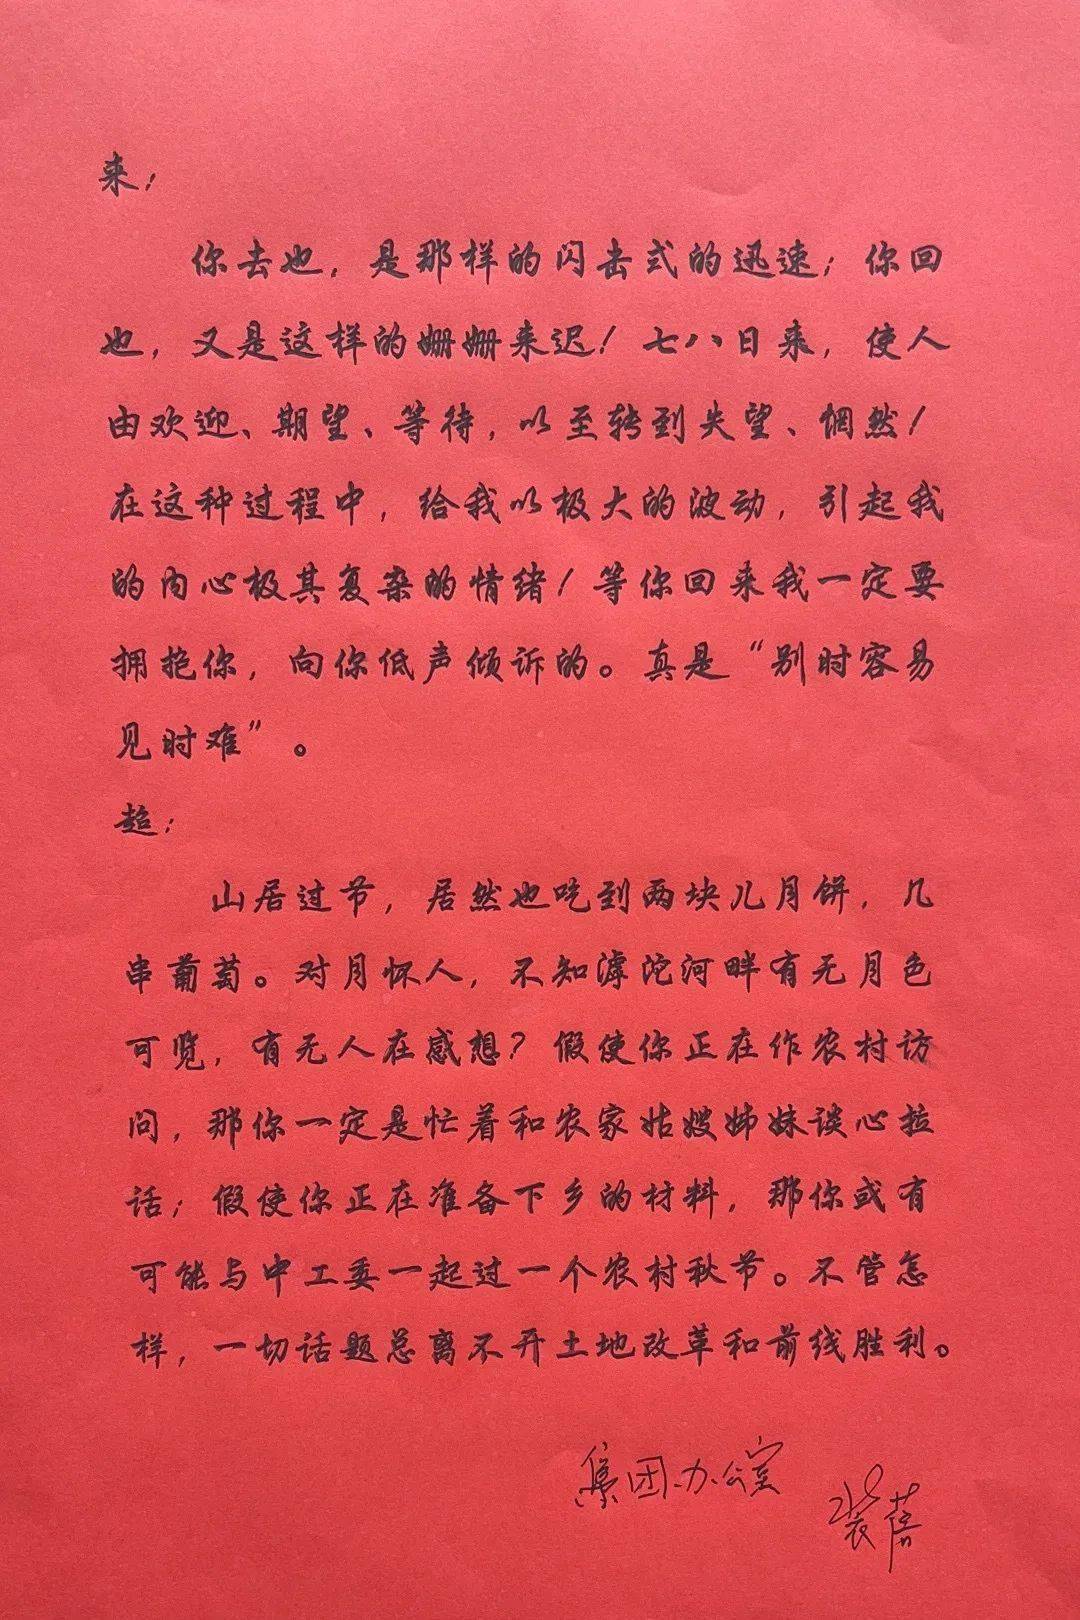 来：
你去也，是那样的闪击式的迅速；你回
也，又是这样的姗姗来迟！七八日来，使人
由欢迎、期望、等待，以至转到失望、惘然！
在这种过程中，给我以极大的波动，引起我
的内心极其复杂的情绪！等你回来我一定要
拥抱你，向你低声倾诉的。真是“别时容易
见时难”。
超：
山居过节，居然也吃到两块儿月饼，几
串葡萄。对月怀人，不知滹沱河畔有无月色
可览，有无人在感想？假使你正在作农村访
问，那你一定是忙着和农家姑嫂姊妹谈心拉
话；假使你正在准备下乡的材料，那你或有
可能与中工委一起过一个农村秋节。不管怎
样，一切话题总离不开土地改革和前线胜利。
集团办公室